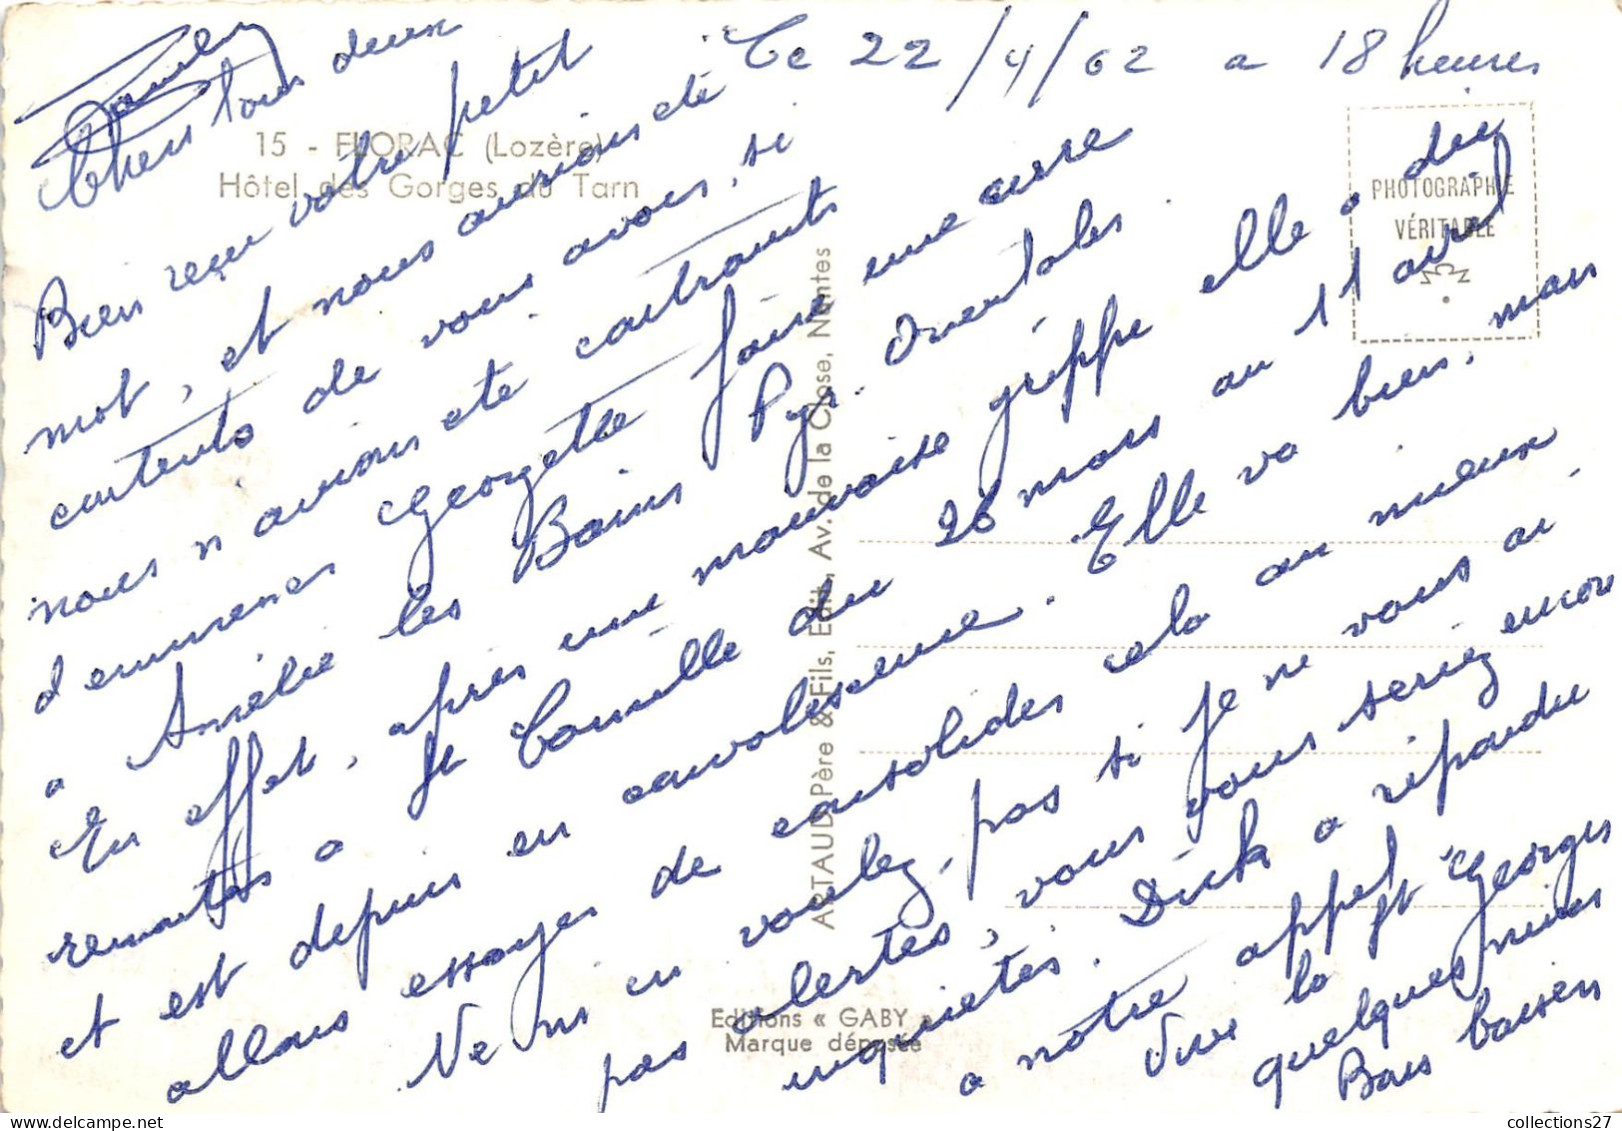 Le 22/4/62 a 18 heures
Chers tous deux
Bien reçu votre petit
mot, et nous aurions été
contents de vous avoir, si
nous n'avions été contraints
d'emmener Georgette faire une cure
a Amélie les Bains Pyr. Orientales.
En effet, après une mauvaise grippe elle a du
remonter a St Camille du 26 mars au 11 avril
et est depuis en convalescence. Elle va bien. mais
allons essayer de consolider cela au mieux.
Ne m'en voulez pas si je ne vous ai
pas alertés, vous vous seriez encore
inquiétés. Dick a répondu
a notre appel
Vive la St Georges
quelques
Bons baisers
15 - FLORAC (Lozère)
Hôtel des Gorges du Tarn
PHOTOGRAPHIE
VÉRITABLE
ARTAUD Père & Fils, Edit., Av. de la Close, Nantes
Editions « GABY »
Marque déposée
collections27